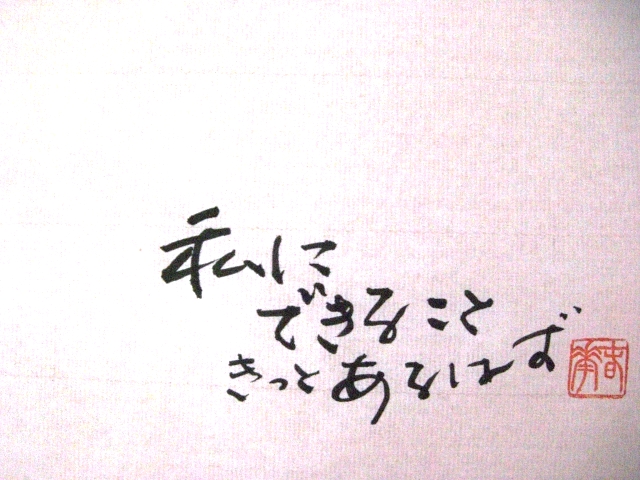 私に
できること
きっとあるはず